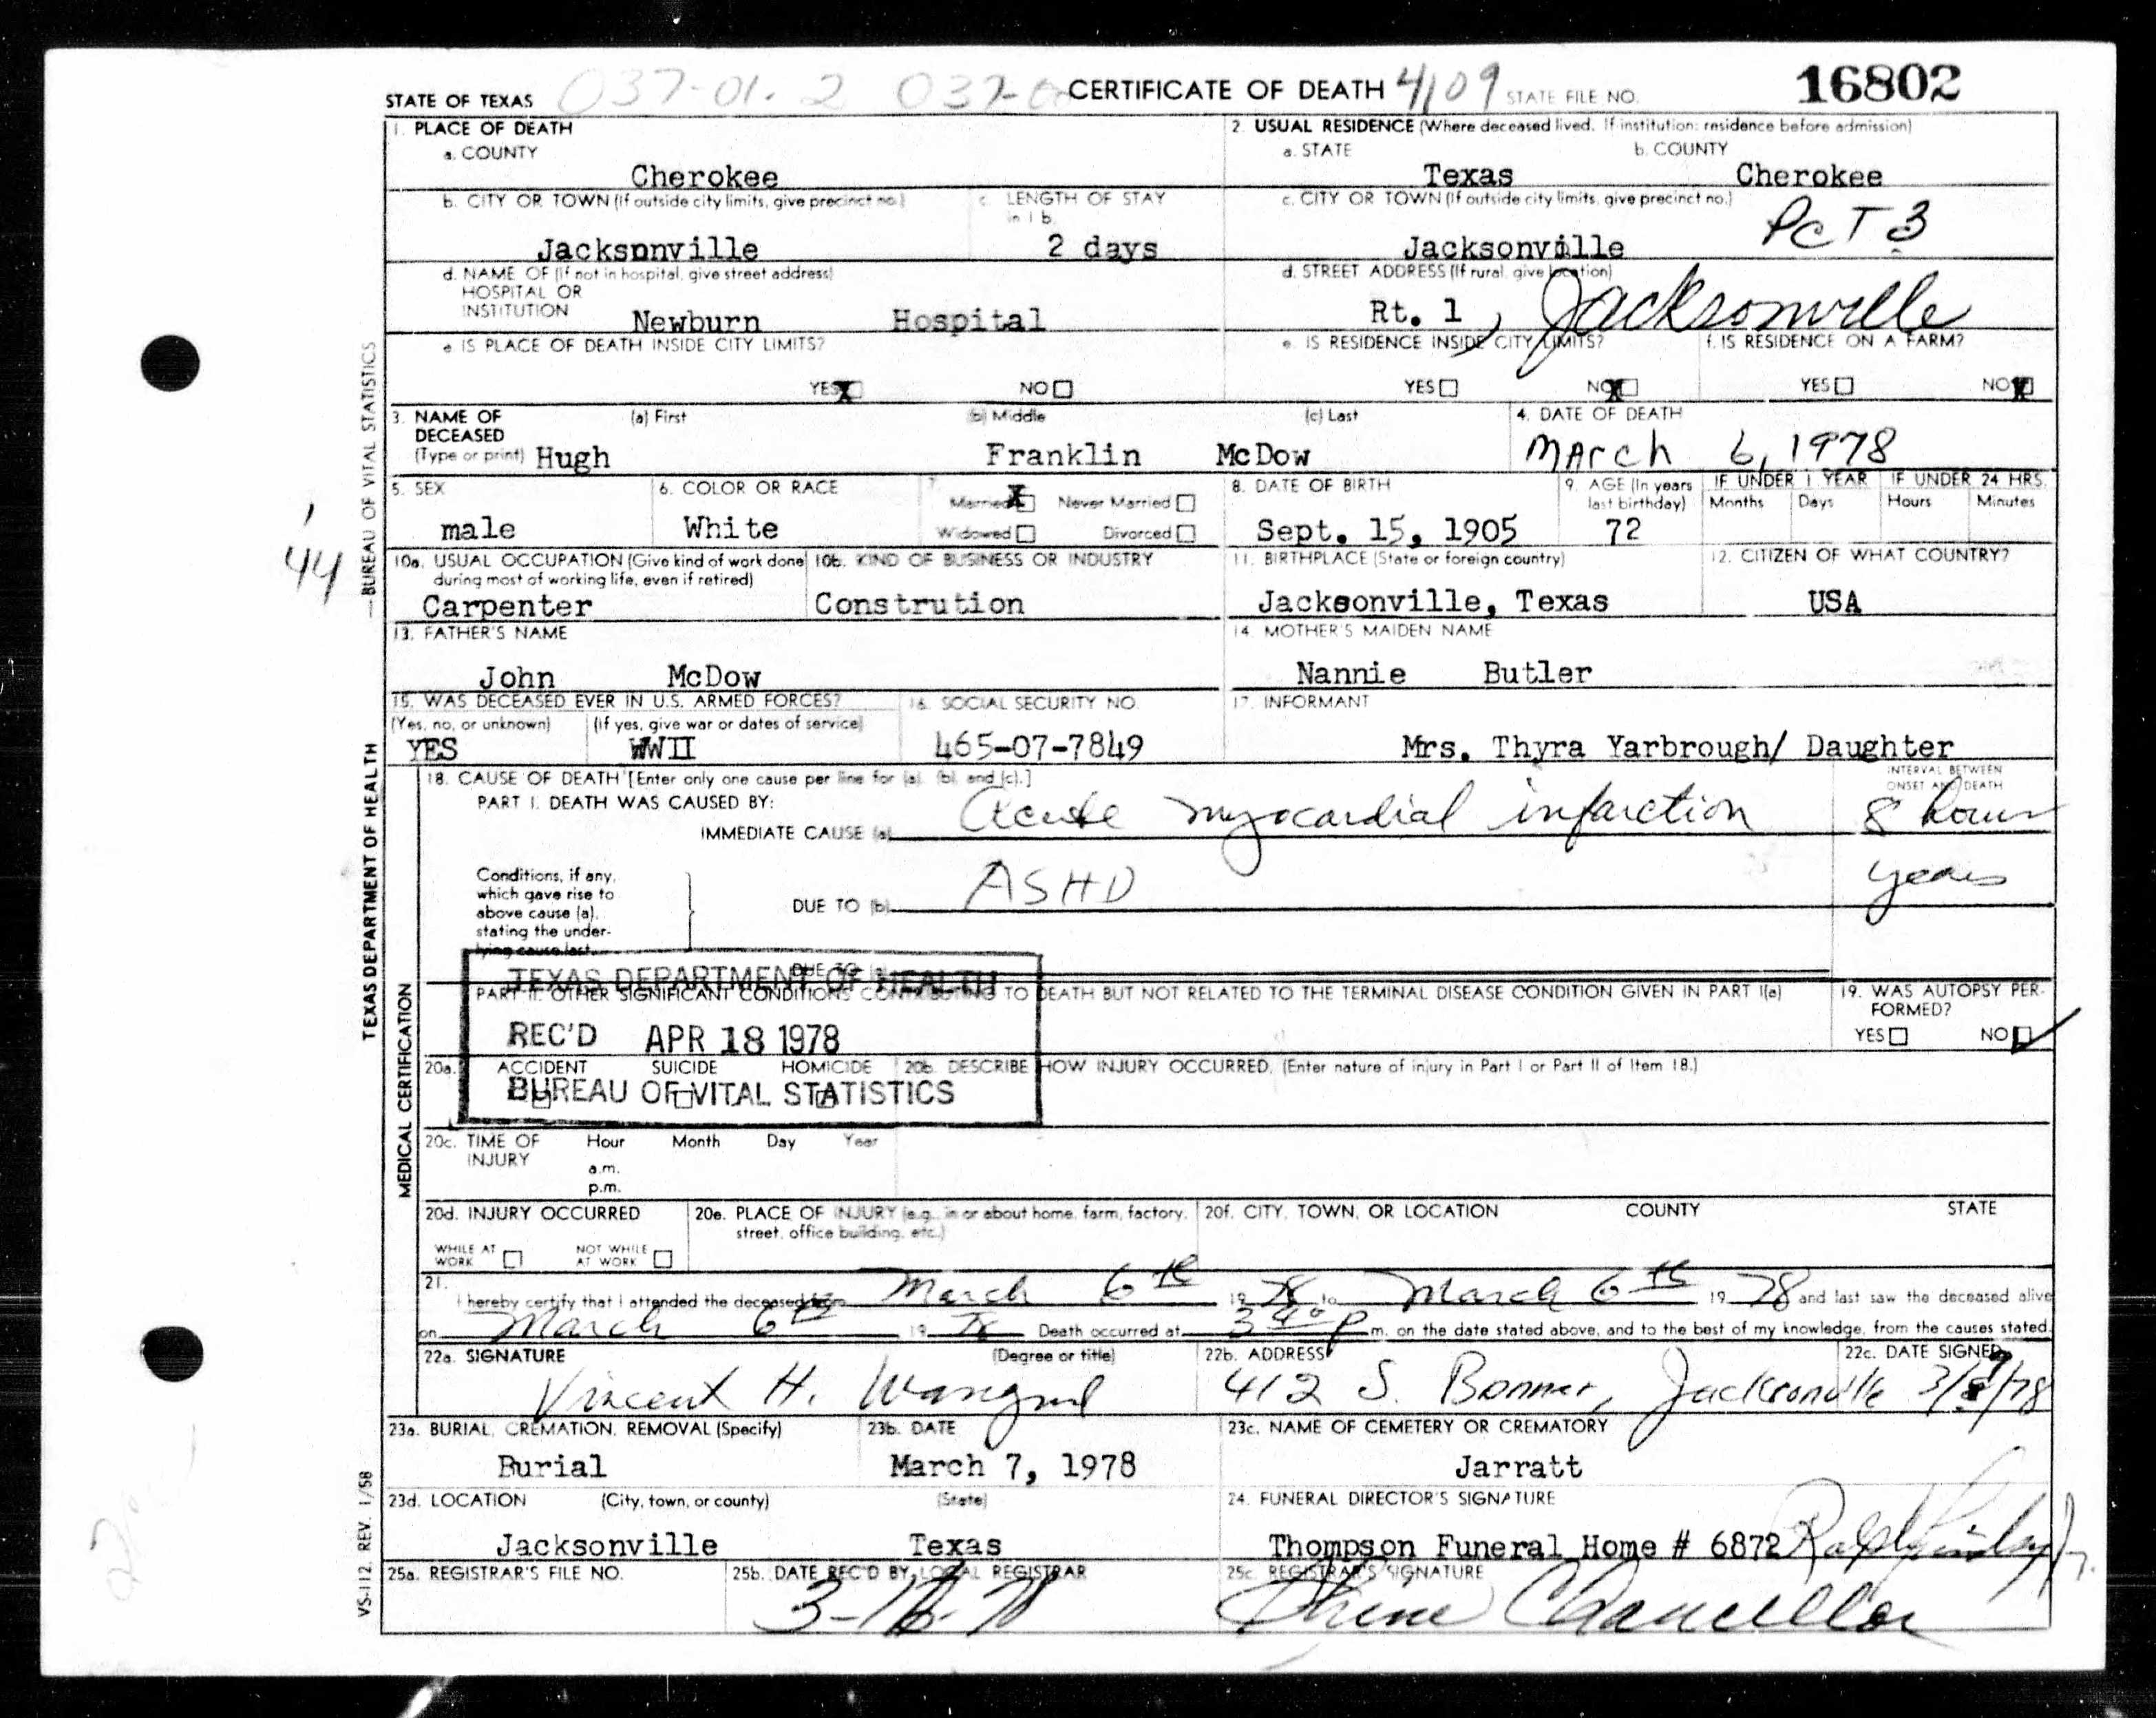 037-01. 2 037-0
STATE OF TEXAS CERTIFICATE OF DEATH 4109 STATE FILE NO. 16802
1. PLACE OF DEATH
a. COUNTY
Cherokee
2. USUAL RESIDENCE (Where deceased lived. If institution: residence before admission)
a. STATE b. COUNTY
Texas Cherokee
b. CITY OR TOWN (If outside city limits, give precinct no.) c. LENGTH OF STAY in 1 b.
Jacksonville 2 days
c. CITY OR TOWN (If outside city limits, give precinct no.)
Jacksonville PCT 3
d. NAME OF (If not in hospital, give street address)
HOSPITAL OR
INSTITUTION Newburn Hospital
d. STREET ADDRESS (If rural, give location)
Rt. 1, Jacksonville
e. IS PLACE OF DEATH INSIDE CITY LIMITS?
YES X NO
e. IS RESIDENCE INSIDE CITY LIMITS? f. IS RESIDENCE ON A FARM?
YES NO X YES NO X
3. NAME OF DECEASED (Type or print) (a) First (b) Middle (c) Last
Hugh Franklin McDow
4. DATE OF DEATH
March 6, 1978
5. SEX
male
6. COLOR OR RACE
White
7. Married X Never Married
Widowed Divorced
8. DATE OF BIRTH
Sept. 15, 1905
9. AGE (In years last birthday)
72
IF UNDER 1 YEAR IF UNDER 24 HRS.
Months Days Hours Minutes
10a. USUAL OCCUPATION (Give kind of work done during most of working life, even if retired)
Carpenter
10b. KIND OF BUSINESS OR INDUSTRY
Constrution
11. BIRTHPLACE (State or foreign country)
Jacksonville, Texas
12. CITIZEN OF WHAT COUNTRY?
USA
13. FATHER'S NAME
John McDow
14. MOTHER'S MAIDEN NAME
Nannie Butler
15. WAS DECEASED EVER IN U.S. ARMED FORCES?
(Yes, no, or unknown) (If yes, give war or dates of service)
YES WWII
16. SOCIAL SECURITY NO.
465-07-7849
17. INFORMANT
Mrs. Thyra Yarbrough/ Daughter
18. CAUSE OF DEATH [Enter only one cause per line for (a), (b), and (c).]
INTERVAL BETWEEN ONSET AND DEATH
PART I. DEATH WAS CAUSED BY:
IMMEDIATE CAUSE (a) Acute myocardial infarction 8 hours
Conditions, if any,
which gave rise to
above cause (a),
stating the under-
lying cause last.
DUE TO (b) ASHD years
DUE TO (c)
PART II. OTHER SIGNIFICANT CONDITIONS CONTRIBUTING TO DEATH BUT NOT RELATED TO THE TERMINAL DISEASE CONDITION GIVEN IN PART I(a)
19. WAS AUTOPSY PER-
FORMED?
YES NO
TEXAS DEPARTMENT OF HEALTH
REC'D APR 18 1978
BUREAU OF VITAL STATISTICS
20a. ACCIDENT SUICIDE HOMICIDE
20b. DESCRIBE HOW INJURY OCCURRED. (Enter nature of injury in Part I or Part II of Item 18.)
20c. TIME OF INJURY Hour Month Day Year
a.m.
p.m.
20d. INJURY OCCURRED
WHILE AT WORK NOT WHILE AT WORK
20e. PLACE OF INJURY (e.g., in or about home, farm, factory, street, office building, etc.)
20f. CITY, TOWN, OR LOCATION COUNTY STATE
21.
I hereby certify that I attended the deceased from March 6th 19 78 to March 6th 19 78 and last saw the deceased alive
on March 6th 19 78 Death occurred at 3 40 P m. on the date stated above, and to the best of my knowledge, from the causes stated.
22a. SIGNATURE (Degree or title)
Vincent H.
22b. ADDRESS
412 S. Bonner, Jacksonville
22c. DATE SIGNED
23a. BURIAL, CREMATION, REMOVAL (Specify)
Burial
23b. DATE
March 7, 1978
23c. NAME OF CEMETERY OR CREMATORY
Jarratt
23d. LOCATION (City, town, or county) (State)
Jacksonville Texas
24. FUNERAL DIRECTOR'S SIGNATURE
Thompson Funeral Home # 6872
25a. REGISTRAR'S FILE NO.
25b. DATE REC'D BY LOCAL REGISTRAR
25c. REGISTRAR'S SIGNATURE
Chancellor
44
TEXAS DEPARTMENT OF HEALTH — BUREAU OF VITAL STATISTICS
MEDICAL CERTIFICATION
VS-112 REV. 1/58